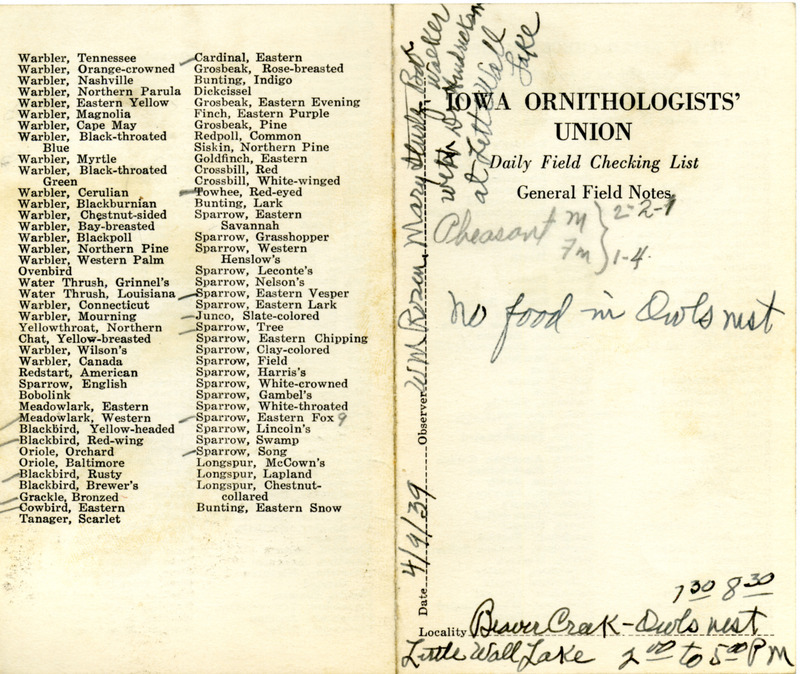 Warbler, Tennessee
Warbler, Orange-crowned
Warbler, Nashville
Warbler, Northern Parula
Warbler, Eastern Yellow
Warbler, Magnolia
Warbler, Cape May
Warbler, Black-throated
Blue
Warbler, Myrtle
Warbler, Black-throated
Green
Warbler, Cerulian
Warbler, Blackburnian
Warbler, Chestnut-sided
Warbler, Bay-breasted
Warbler, Blackpoll
Warbler, Northern Pine
Warbler, Western Palm
Ovenbird
Water Thrush, Grinnel's
Water Thrush, Louisiana
Warbler, Connecticut
Warbler, Mourning
Yellowthroat, Northern
Chat, Yellow-breasted
Warbler, Wilson's
Warbler, Canada
Redstart, American
Sparrow, English
Bobolink
Meadowlark, Eastern
Meadowlark, Western
Blackbird, Yellow-headed
Blackbird, Red-wing
Oriole, Orchard
Oriole, Baltimore
Blackbird, Rusty
Blackbird, Brewer's
Grackle, Bronzed
Cowbird, Eastern
Tanager, Scarlet
Cardinal, Eastern
Grosbeak, Rose-breasted
Bunting, Indigo
Dickcissel
Grosbeak, Eastern Evening
Finch, Eastern Purple
Grosbeak, Pine
Redpoll, Common
Siskin, Northern Pine
Goldfinch, Eastern
Crossbill, Red
Crossbill, White-winged
Towhee, Red-eyed
Bunting, Lark
Sparrow, Eastern
Savannah
Sparrow, Grasshopper
Sparrow, Western
Henslow's
Sparrow, Leconte's
Sparrow, Nelson's
Sparrow, Eastern Vesper
Sparrow, Eastern Lark
Junco, Slate-colored
Sparrow, Tree
Sparrow, Eastern Chipping
Sparrow, Clay-colored
Sparrow, Field
Sparrow, Harris's
Sparrow, White-crowned
Sparrow, Gambel's
Sparrow, White-throated
Sparrow, Eastern Fox 9
Sparrow, Lincoln's
Sparrow, Swamp
Sparrow, Song
Longspur, McCown's
Longspur, Lapland
Longspur, Chestnut-
collared
Bunting, Eastern Snow
IOWA ORNITHOLOGISTS'
UNION
Daily Field Checking List
General Field Notes
Pheasant M } 2-2-1
Fm } 1-4
No food in Owls nest
Date 4/9/39 Observer Wm Rosen, Mary
Walker
at Little Wall
Lake
7 30 8 30
Locality Beaver Creek - Owls nest
Little Wall Lake 2 00 to 5 00 PM